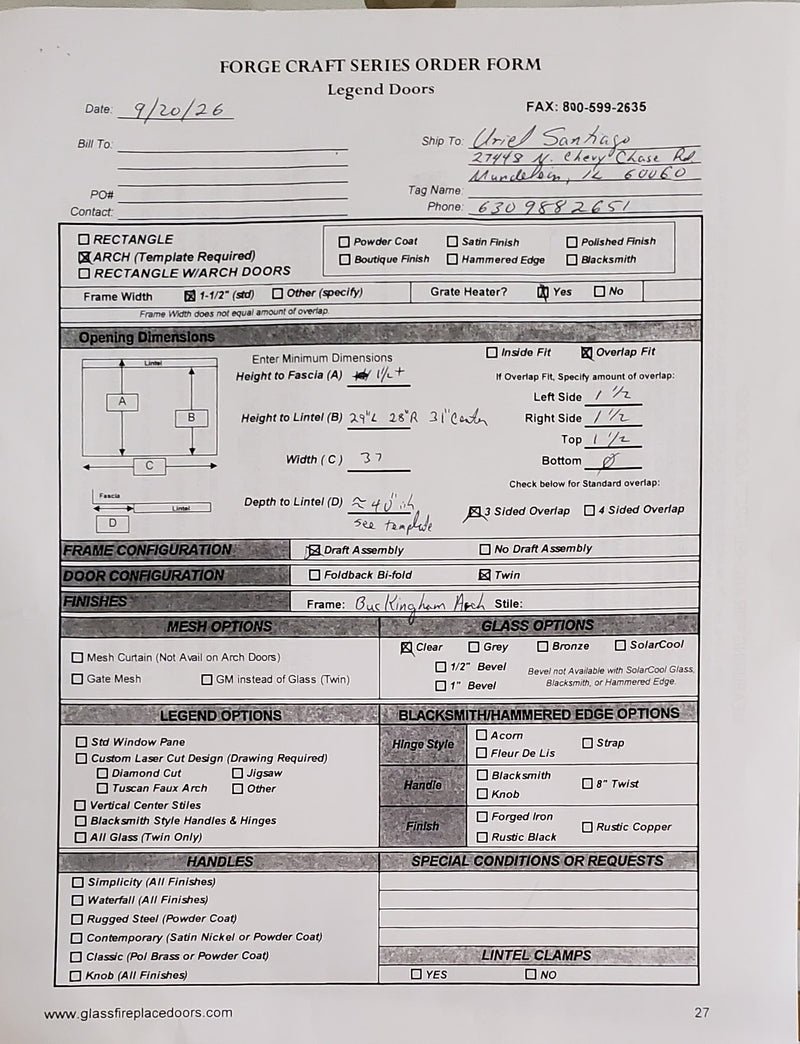 FORGE CRAFT SERIES ORDER FORM
Legend Doors
Date: 9/20/26
FAX: 800-599-2635
Bill To:
Ship To: Uriel Santiago
27448 N. Chevy Chase Rd
Mundelein, IL 60060
PO#
Tag Name:
Contact:
Phone: 6309882651
☐ RECTANGLE
☒ ARCH (Template Required)
☐ RECTANGLE W/ARCH DOORS
☐ Powder Coat ☐ Satin Finish ☐ Polished Finish
☐ Boutique Finish ☐ Hammered Edge ☐ Blacksmith
Frame Width ☒ 1-1/2" (std) ☐ Other (specify) Grate Heater? ☒ Yes ☐ No
Frame Width does not equal amount of overlap.
Opening Dimensions
Lintel
A
B
C
Fascia
Lintel
D
Enter Minimum Dimensions
Height to Fascia (A) 1 1/2+
Height to Lintel (B) 29"L 28"R 31"Center
Width (C) 37
Depth to Lintel (D) ≈ 40"
see template
☐ Inside Fit ☒ Overlap Fit
If Overlap Fit, Specify amount of overlap:
Left Side 1 1/2
Right Side 1 1/2
Top 1 1/2
Bottom Ø
Check below for Standard overlap:
☒ 3 Sided Overlap ☐ 4 Sided Overlap
FRAME CONFIGURATION ☒ Draft Assembly ☐ No Draft Assembly
DOOR CONFIGURATION ☐ Foldback Bi-fold ☒ Twin
FINISHES Frame: Buckingham Arch Stile:
MESH OPTIONS
☐ Mesh Curtain (Not Avail on Arch Doors)
☐ Gate Mesh ☐ GM instead of Glass (Twin)
GLASS OPTIONS
☒ Clear ☐ Grey ☐ Bronze ☐ SolarCool
☐ 1/2" Bevel
☐ 1" Bevel
Bevel not Available with SolarCool Glass,
Blacksmith, or Hammered Edge.
LEGEND OPTIONS
☐ Std Window Pane
☐ Custom Laser Cut Design (Drawing Required)
☐ Diamond Cut ☐ Jigsaw
☐ Tuscan Faux Arch ☐ Other
☐ Vertical Center Stiles
☐ Blacksmith Style Handles & Hinges
☐ All Glass (Twin Only)
BLACKSMITH/HAMMERED EDGE OPTIONS
Hinge Style ☐ Acorn ☐ Strap
☐ Fleur De Lis
Handle ☐ Blacksmith ☐ 8" Twist
☐ Knob
Finish ☐ Forged Iron ☐ Rustic Copper
☐ Rustic Black
HANDLES
☐ Simplicity (All Finishes)
☐ Waterfall (All Finishes)
☐ Rugged Steel (Powder Coat)
☐ Contemporary (Satin Nickel or Powder Coat)
☐ Classic (Pol Brass or Powder Coat)
☐ Knob (All Finishes)
SPECIAL CONDITIONS OR REQUESTS
LINTEL CLAMPS
☐ YES ☐ NO
www.glassfireplacedoors.com
27